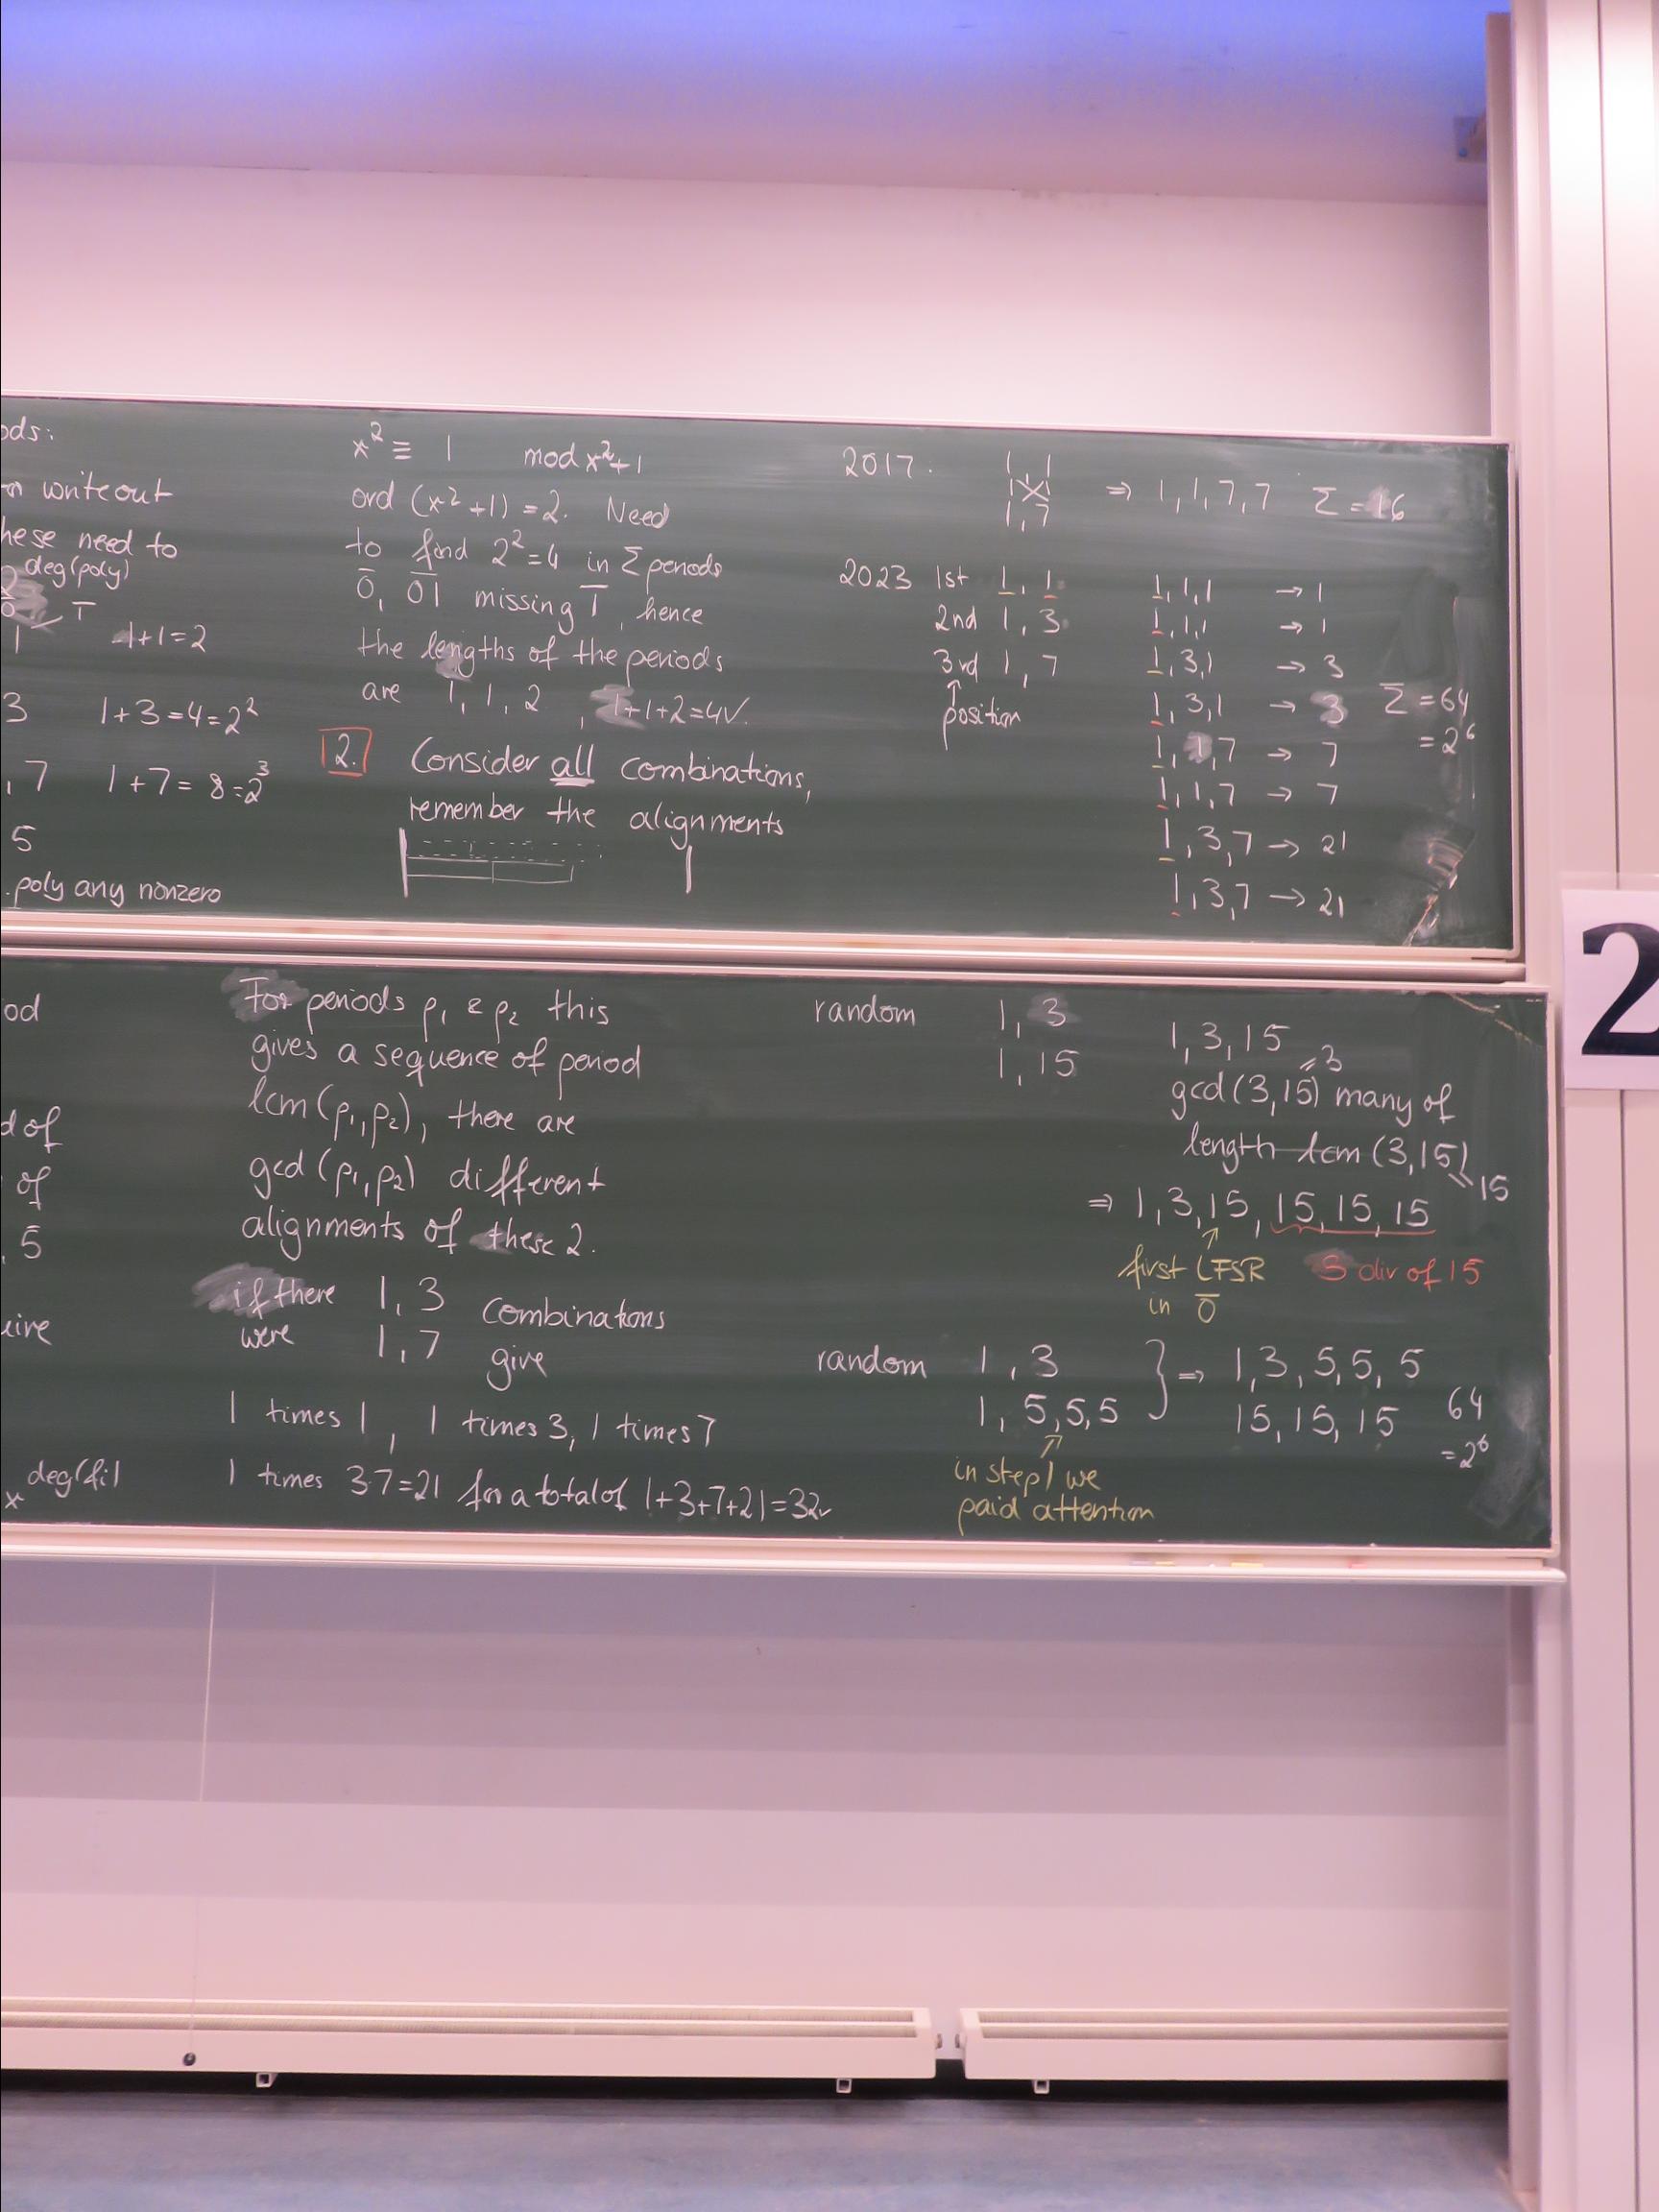 ods:
writeout
hese need to
deg(poly)
1+1=2
3 1+3=4=2²
, 7 1+7=8=2³
5
.poly any nonzero
x² ≡ 1 mod x²+1
ord (x²+1)=2. Need
to find 2²=4 in Σ periods
0̅, 0̅1̅ missing 1̅, hence
the lengths of the periods
are 1, 1, 2, 1+1+2=4✓.
2. Consider all combinations,
remember the alignments
2017. 1, 1
1, 7 ⇒ 1, 1, 7, 7 Σ=16
2023 1st 1, 1
2nd 1, 3
3rd 1, 7
↑
position
1,1,1 → 1
1,1,1 → 1
1,3,1 → 3
1,3,1 → 3 Σ=64
1,1,7 → 7 =2⁶
1,1,7 → 7
1,3,7 → 21
1,3,7 → 21
od
d of
of
, 5
uire
deg(fi)
x
For periods p₁ & p₂ this
gives a sequence of period
lcm(p₁,p₂), there are
gcd(p₁,p₂) different
alignments of these 2.
if there 1, 3 combinations
were 1, 7 give
1 times 1, 1 times 3, 1 times 7
1 times 3·7=21 for a total of 1+3+7+21=32✓
random 1, 3
1, 15
1, 3, 15
=3
gcd(3,15) many of
length lcm(3,15)
=15
⇒ 1,3,15, 15, 15, 15
↑
first LFSR 3 div of 15
in 0̅
random 1, 3 } ⇒ 1,3,5,5,5
1, 5,5,5 15, 15, 15 64
=2⁶
in step 1 we
paid attention
2